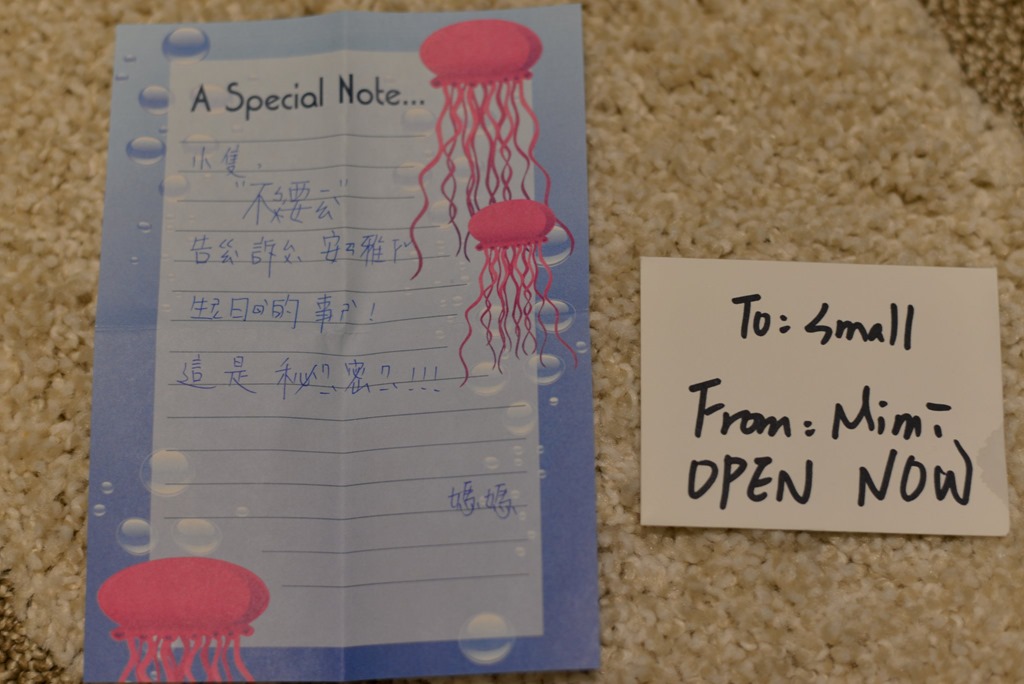 A Special Note...
小隻,
"不要"
告訴 安雅
生日的事!
這是秘密!!!
媽媽
To: Small
From: Mimi
OPEN NOW